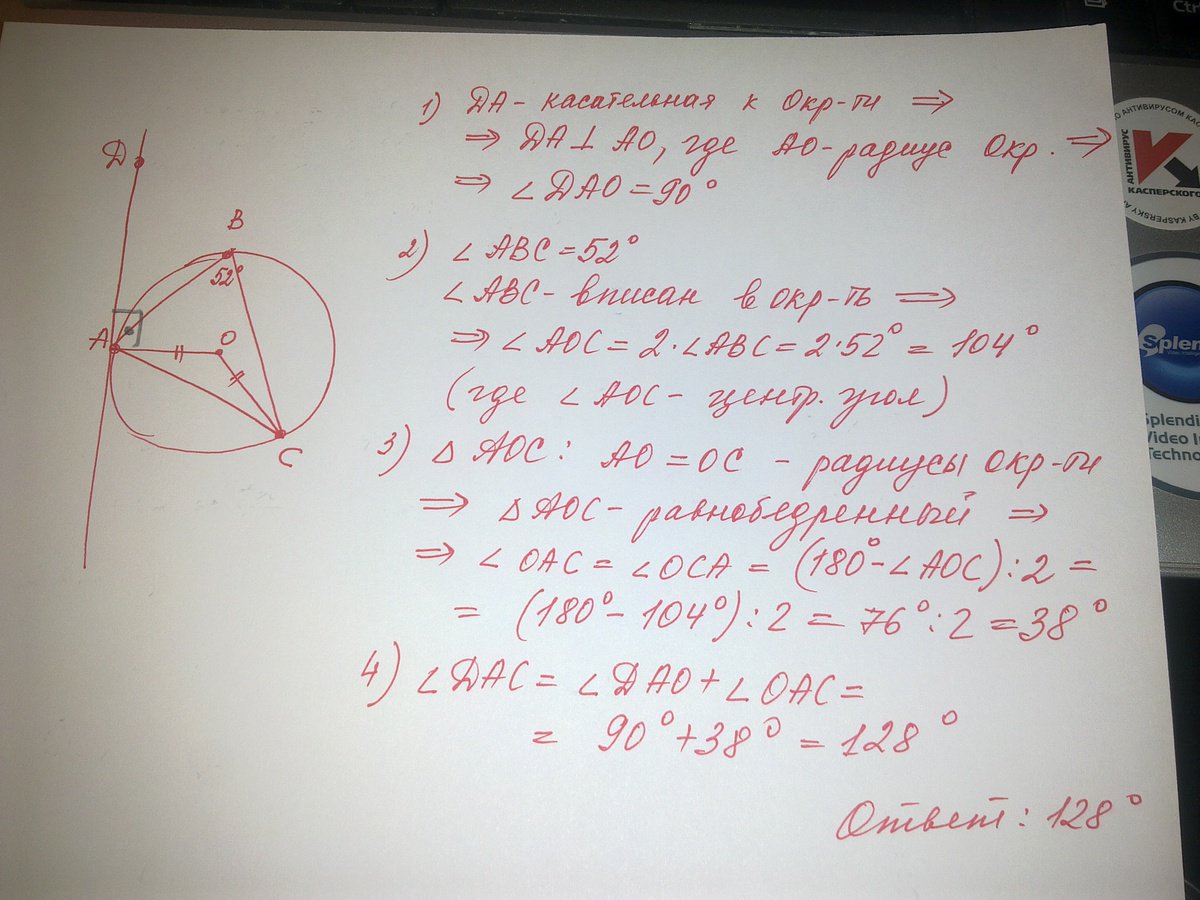 1) DA - касательная к окр-ти ⇒
⇒ DA ⊥ AO, где AO-радиус окр. ⇒
⇒ ∠DAO = 90°
2) ∠ABC = 52°
∠ABC - вписан в окр-ть ⇒
⇒ ∠AOC = 2·∠ABC = 2·52° = 104°
(где ∠AOC - центр. угол)
3) △AOC: AO = OC - радиусы окр-ти
⇒ △AOC - равнобедренный ⇒
⇒ ∠OAC = ∠OCA = (180° - ∠AOC):2 =
= (180° - 104°):2 = 76°:2 = 38°
4) ∠DAC = ∠DAO + ∠OAC =
= 90° + 38° = 128°
Ответ: 128°
D
B
52°
A
O
C
Ctr
АНТИВИРУС
КАСПЕРСКОГО
BY KASPERSKY
Splen
Splendi
Video I
Techno